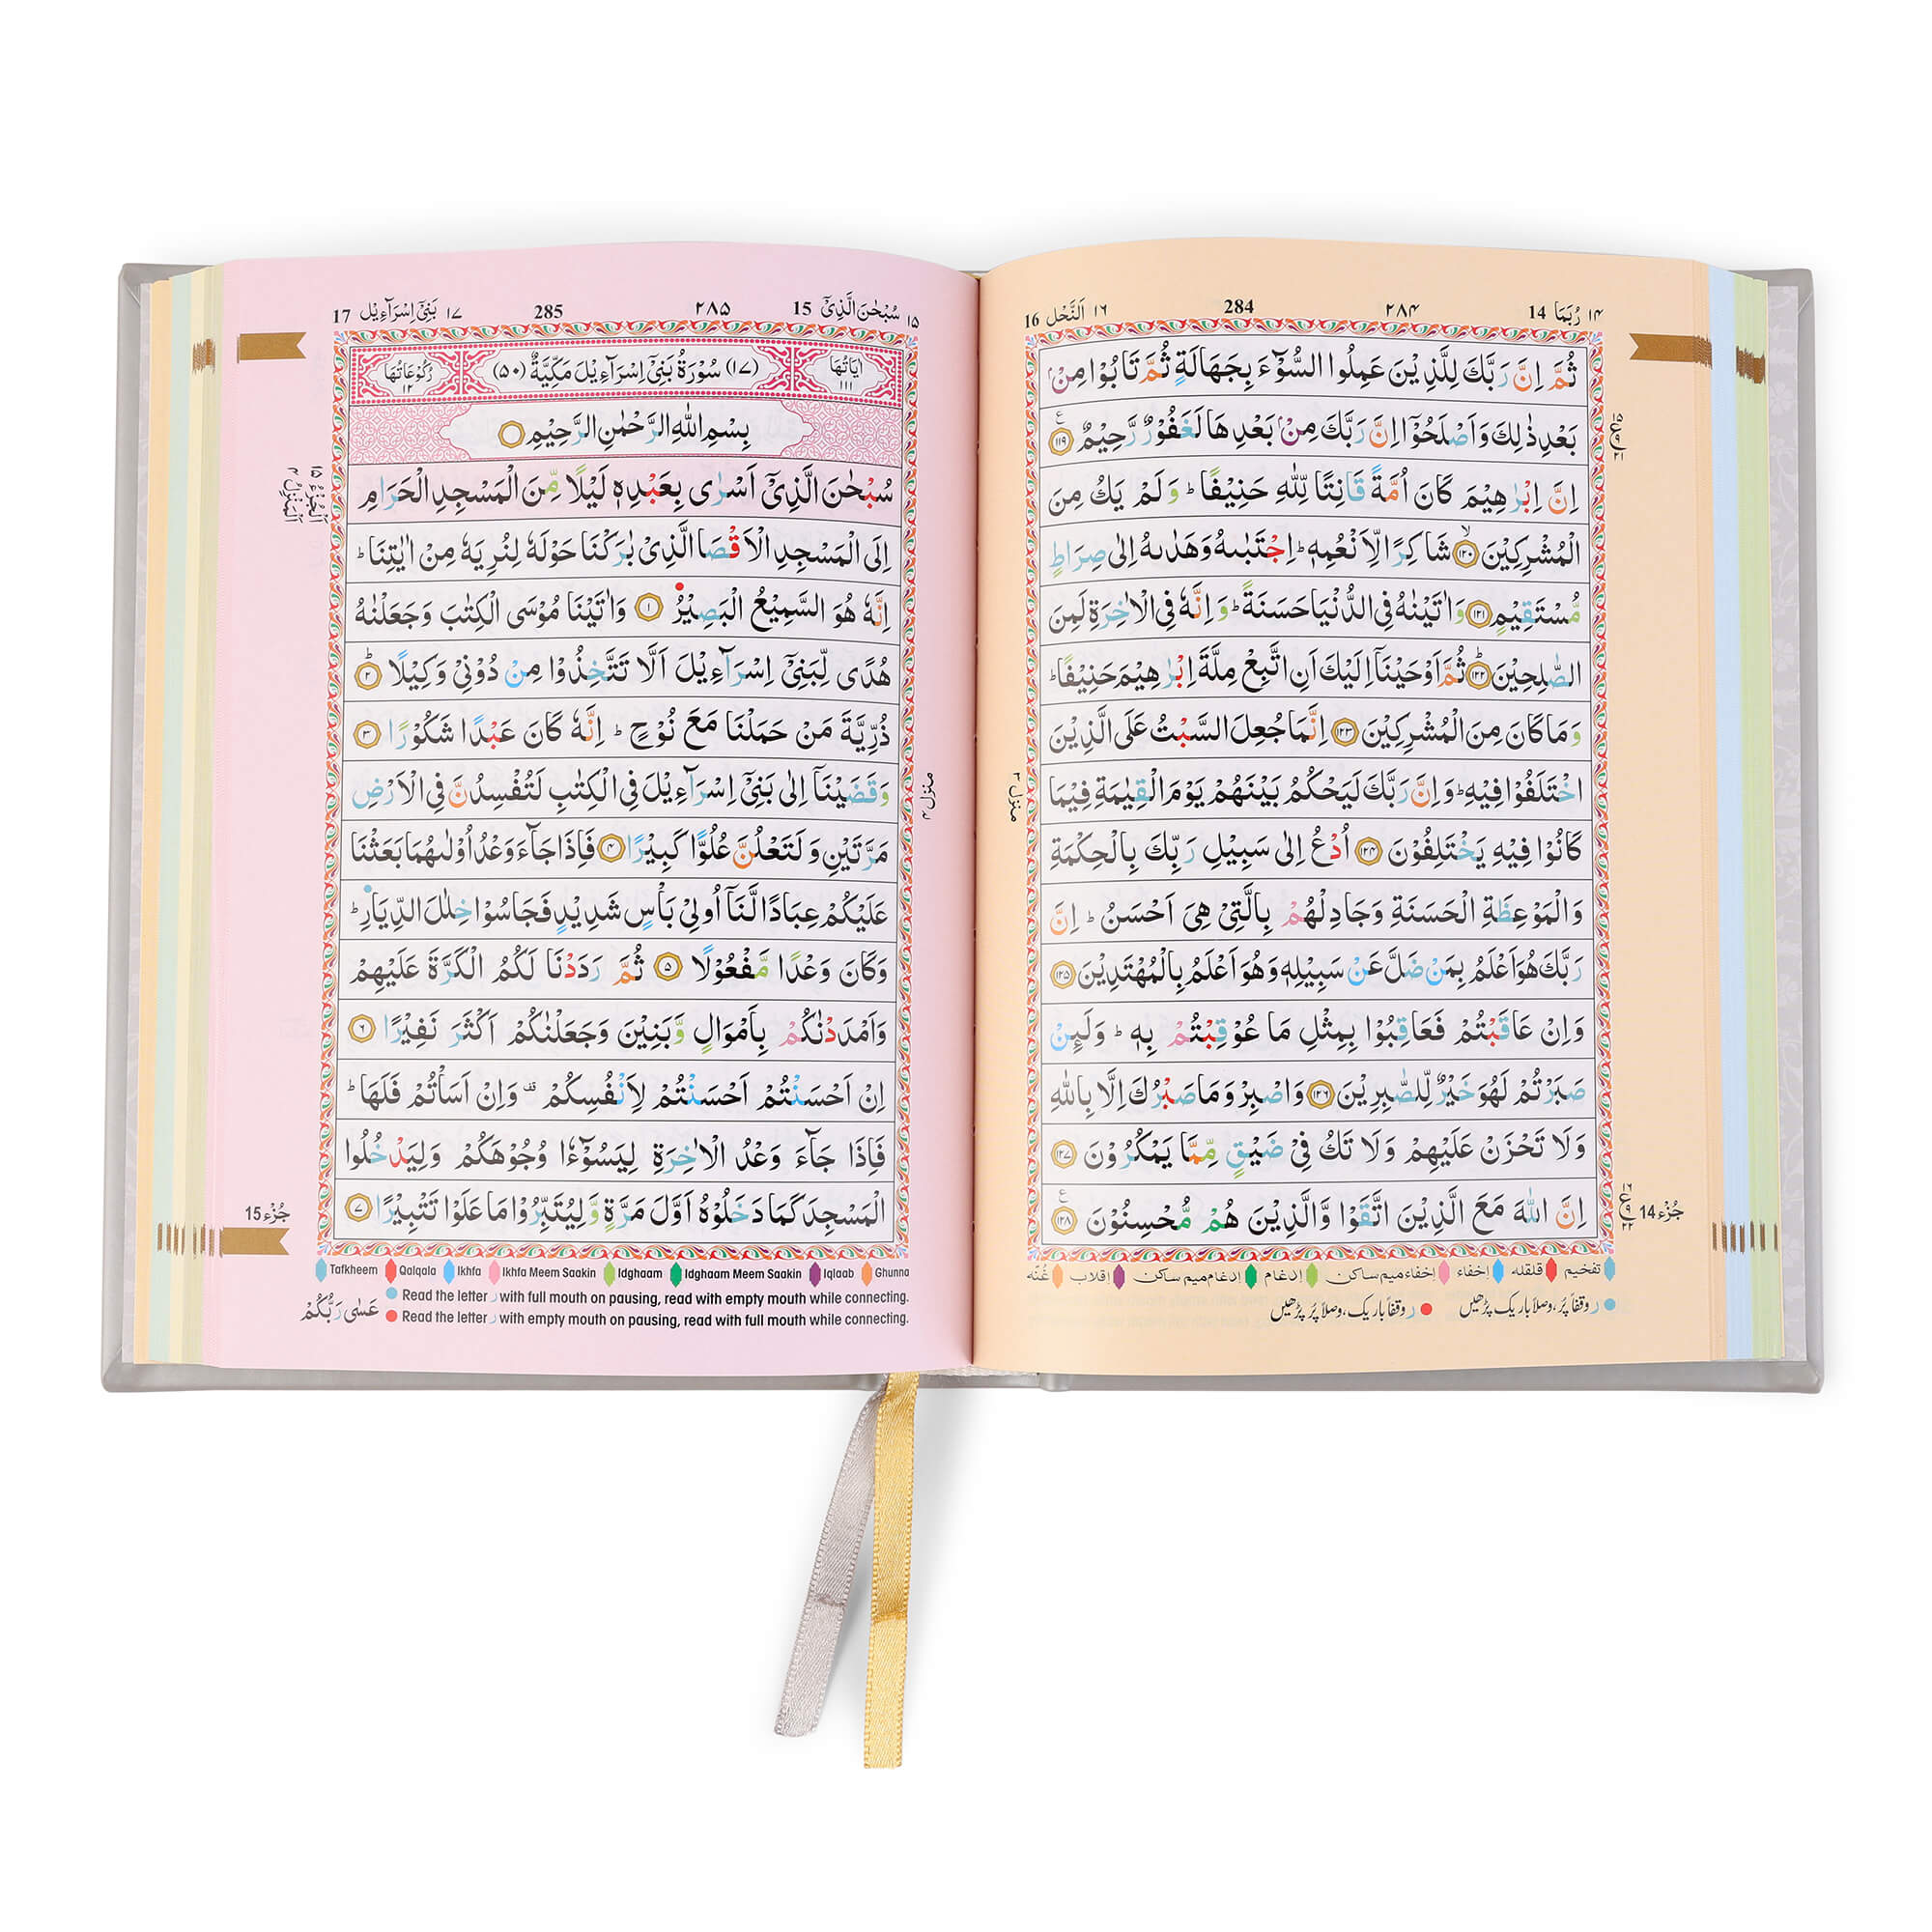 ١٤ رُبَمَا 14
٢٨٤
284
١٦ اَلنَّحْل 16
ثُمَّ اِنَّ رَبَّكَ لِلَّذِيْنَ عَمِلُوا السُّوْٓءَ بِجَهَالَةٍ ثُمَّ تَابُوْا مِنْۢ
بَعْدِ ذٰلِكَ وَاَصْلَحُوْٓا اِنَّ رَبَّكَ مِنْۢ بَعْدِهَا لَغَفُوْرٌ رَّحِيْمٌ ١١٩
اِنَّ اِبْرٰهِيْمَ كَانَ اُمَّةً قَانِتًا لِّلّٰهِ حَنِيْفًا ؕ وَلَمْ يَكُ مِنَ
الْمُشْرِكِيْنَ ١٢٠ شَاكِرًا لِّاَنْعُمِهٖ ؕ اِجْتَبٰىهُ وَهَدٰىهُ اِلٰى صِرَاطٍ
مُّسْتَقِيْمٍ ١٢١ وَاٰتَيْنٰهُ فِى الدُّنْيَا حَسَنَةً ؕ وَاِنَّهٗ فِى الْاٰخِرَةِ لَمِنَ
الصّٰلِحِيْنَ ١٢٢ ثُمَّ اَوْحَيْنَآ اِلَيْكَ اَنِ اتَّبِعْ مِلَّةَ اِبْرٰهِيْمَ حَنِيْفًا ؕ
وَمَا كَانَ مِنَ الْمُشْرِكِيْنَ ١٢٣ اِنَّمَا جُعِلَ السَّبْتُ عَلَى الَّذِيْنَ
اخْتَلَفُوْا فِيْهِ ؕ وَاِنَّ رَبَّكَ لَيَحْكُمُ بَيْنَهُمْ يَوْمَ الْقِيٰمَةِ فِيْمَا
كَانُوْا فِيْهِ يَخْتَلِفُوْنَ ١٢٤ اُدْعُ اِلٰى سَبِيْلِ رَبِّكَ بِالْحِكْمَةِ
وَالْمَوْعِظَةِ الْحَسَنَةِ وَجَادِلْهُمْ بِالَّتِيْ هِىَ اَحْسَنُ ؕ اِنَّ
رَبَّكَ هُوَ اَعْلَمُ بِمَنْ ضَلَّ عَنْ سَبِيْلِهٖ وَهُوَ اَعْلَمُ بِالْمُهْتَدِيْنَ ١٢٥
وَاِنْ عَاقَبْتُمْ فَعَاقِبُوْا بِمِثْلِ مَا عُوْقِبْتُمْ بِهٖ ؕ وَلَئِنْ
صَبَرْتُمْ لَهُوَ خَيْرٌ لِّلصّٰبِرِيْنَ ١٢٦ وَاصْبِرْ وَمَا صَبْرُكَ اِلَّا بِاللّٰهِ
وَلَا تَحْزَنْ عَلَيْهِمْ وَلَا تَكُ فِيْ ضَيْقٍ مِّمَّا يَمْكُرُوْنَ ١٢٧
اِنَّ اللّٰهَ مَعَ الَّذِيْنَ اتَّقَوْا وَّالَّذِيْنَ هُمْ مُّحْسِنُوْنَ ١٢٨
منزل ٣
جُزْء 14
تفخیم قلقله اِخفاء اِخفاءمیم ساکن اِدغام اِدغام میم ساکن اِقلاب غُنّه
ر وقفاً پُر، وصلاً باریک پڑھیں ر وقفاً باریک، وصلاً پُر پڑھیں
١٥ سُبْحٰنَ الَّذِيْٓ 15
٢٨٥
285
١٧ بَنِيْٓ اِسْرَآءِيْل 17
اٰيَاتُهَا ١١١
(١٧) سُوْرَةُ بَنِيْٓ اِسْرَآءِيْلَ مَكِّيَّةٌ (٥٠)
رُكُوْعَاتُهَا ١٢
بِسْمِ اللّٰهِ الرَّحْمٰنِ الرَّحِيْمِ
سُبْحٰنَ الَّذِيْٓ اَسْرٰى بِعَبْدِهٖ لَيْلًا مِّنَ الْمَسْجِدِ الْحَرَامِ
اِلَى الْمَسْجِدِ الْاَقْصَا الَّذِيْ بٰرَكْنَا حَوْلَهٗ لِنُرِيَهٗ مِنْ اٰيٰتِنَا ؕ
اِنَّهٗ هُوَ السَّمِيْعُ الْبَصِيْرُ ١ وَاٰتَيْنَا مُوْسَى الْكِتٰبَ وَجَعَلْنٰهُ
هُدًى لِّبَنِيْٓ اِسْرَآءِيْلَ اَلَّا تَتَّخِذُوْا مِنْ دُوْنِيْ وَكِيْلًا ٢ ؕ
ذُرِّيَّةَ مَنْ حَمَلْنَا مَعَ نُوْحٍ ؕ اِنَّهٗ كَانَ عَبْدًا شَكُوْرًا ٣
وَقَضَيْنَآ اِلٰى بَنِيْٓ اِسْرَآءِيْلَ فِى الْكِتٰبِ لَتُفْسِدُنَّ فِى الْاَرْضِ
مَرَّتَيْنِ وَلَتَعْلُنَّ عُلُوًّا كَبِيْرًا ٤ فَاِذَا جَآءَ وَعْدُ اُوْلٰىهُمَا بَعَثْنَا
عَلَيْكُمْ عِبَادًا لَّنَآ اُولِيْ بَاْسٍ شَدِيْدٍ فَجَاسُوْا خِلٰلَ الدِّيَارِ ؕ
وَكَانَ وَعْدًا مَّفْعُوْلًا ٥ ثُمَّ رَدَدْنَا لَكُمُ الْكَرَّةَ عَلَيْهِمْ
وَاَمْدَدْنٰكُمْ بِاَمْوَالٍ وَّبَنِيْنَ وَجَعَلْنٰكُمْ اَكْثَرَ نَفِيْرًا ٦
اِنْ اَحْسَنْتُمْ اَحْسَنْتُمْ لِاَنْفُسِكُمْ ۫ وَاِنْ اَسَاْتُمْ فَلَهَا ؕ
فَاِذَا جَآءَ وَعْدُ الْاٰخِرَةِ لِيَسُوْٓءٗا وُجُوْهَكُمْ وَلِيَدْخُلُوا
الْمَسْجِدَ كَمَا دَخَلُوْهُ اَوَّلَ مَرَّةٍ وَّلِيُتَبِّرُوْا مَا عَلَوْا تَتْبِيْرًا ٧
اَلْجُزْءُ ١٥
اَلْمَنْزِلُ ٤
منزل ٤
جُزْء 15
Tafkheem Qalqala Ikhfa Ikhfa Meem Saakin Idghaam Idghaam Meem Saakin Iqlaab Ghunna
Read the letter ر with full mouth on pausing, read with empty mouth while connecting.
Read the letter ر with empty mouth on pausing, read with full mouth while connecting.
عَسٰى رَبُّكُمْ